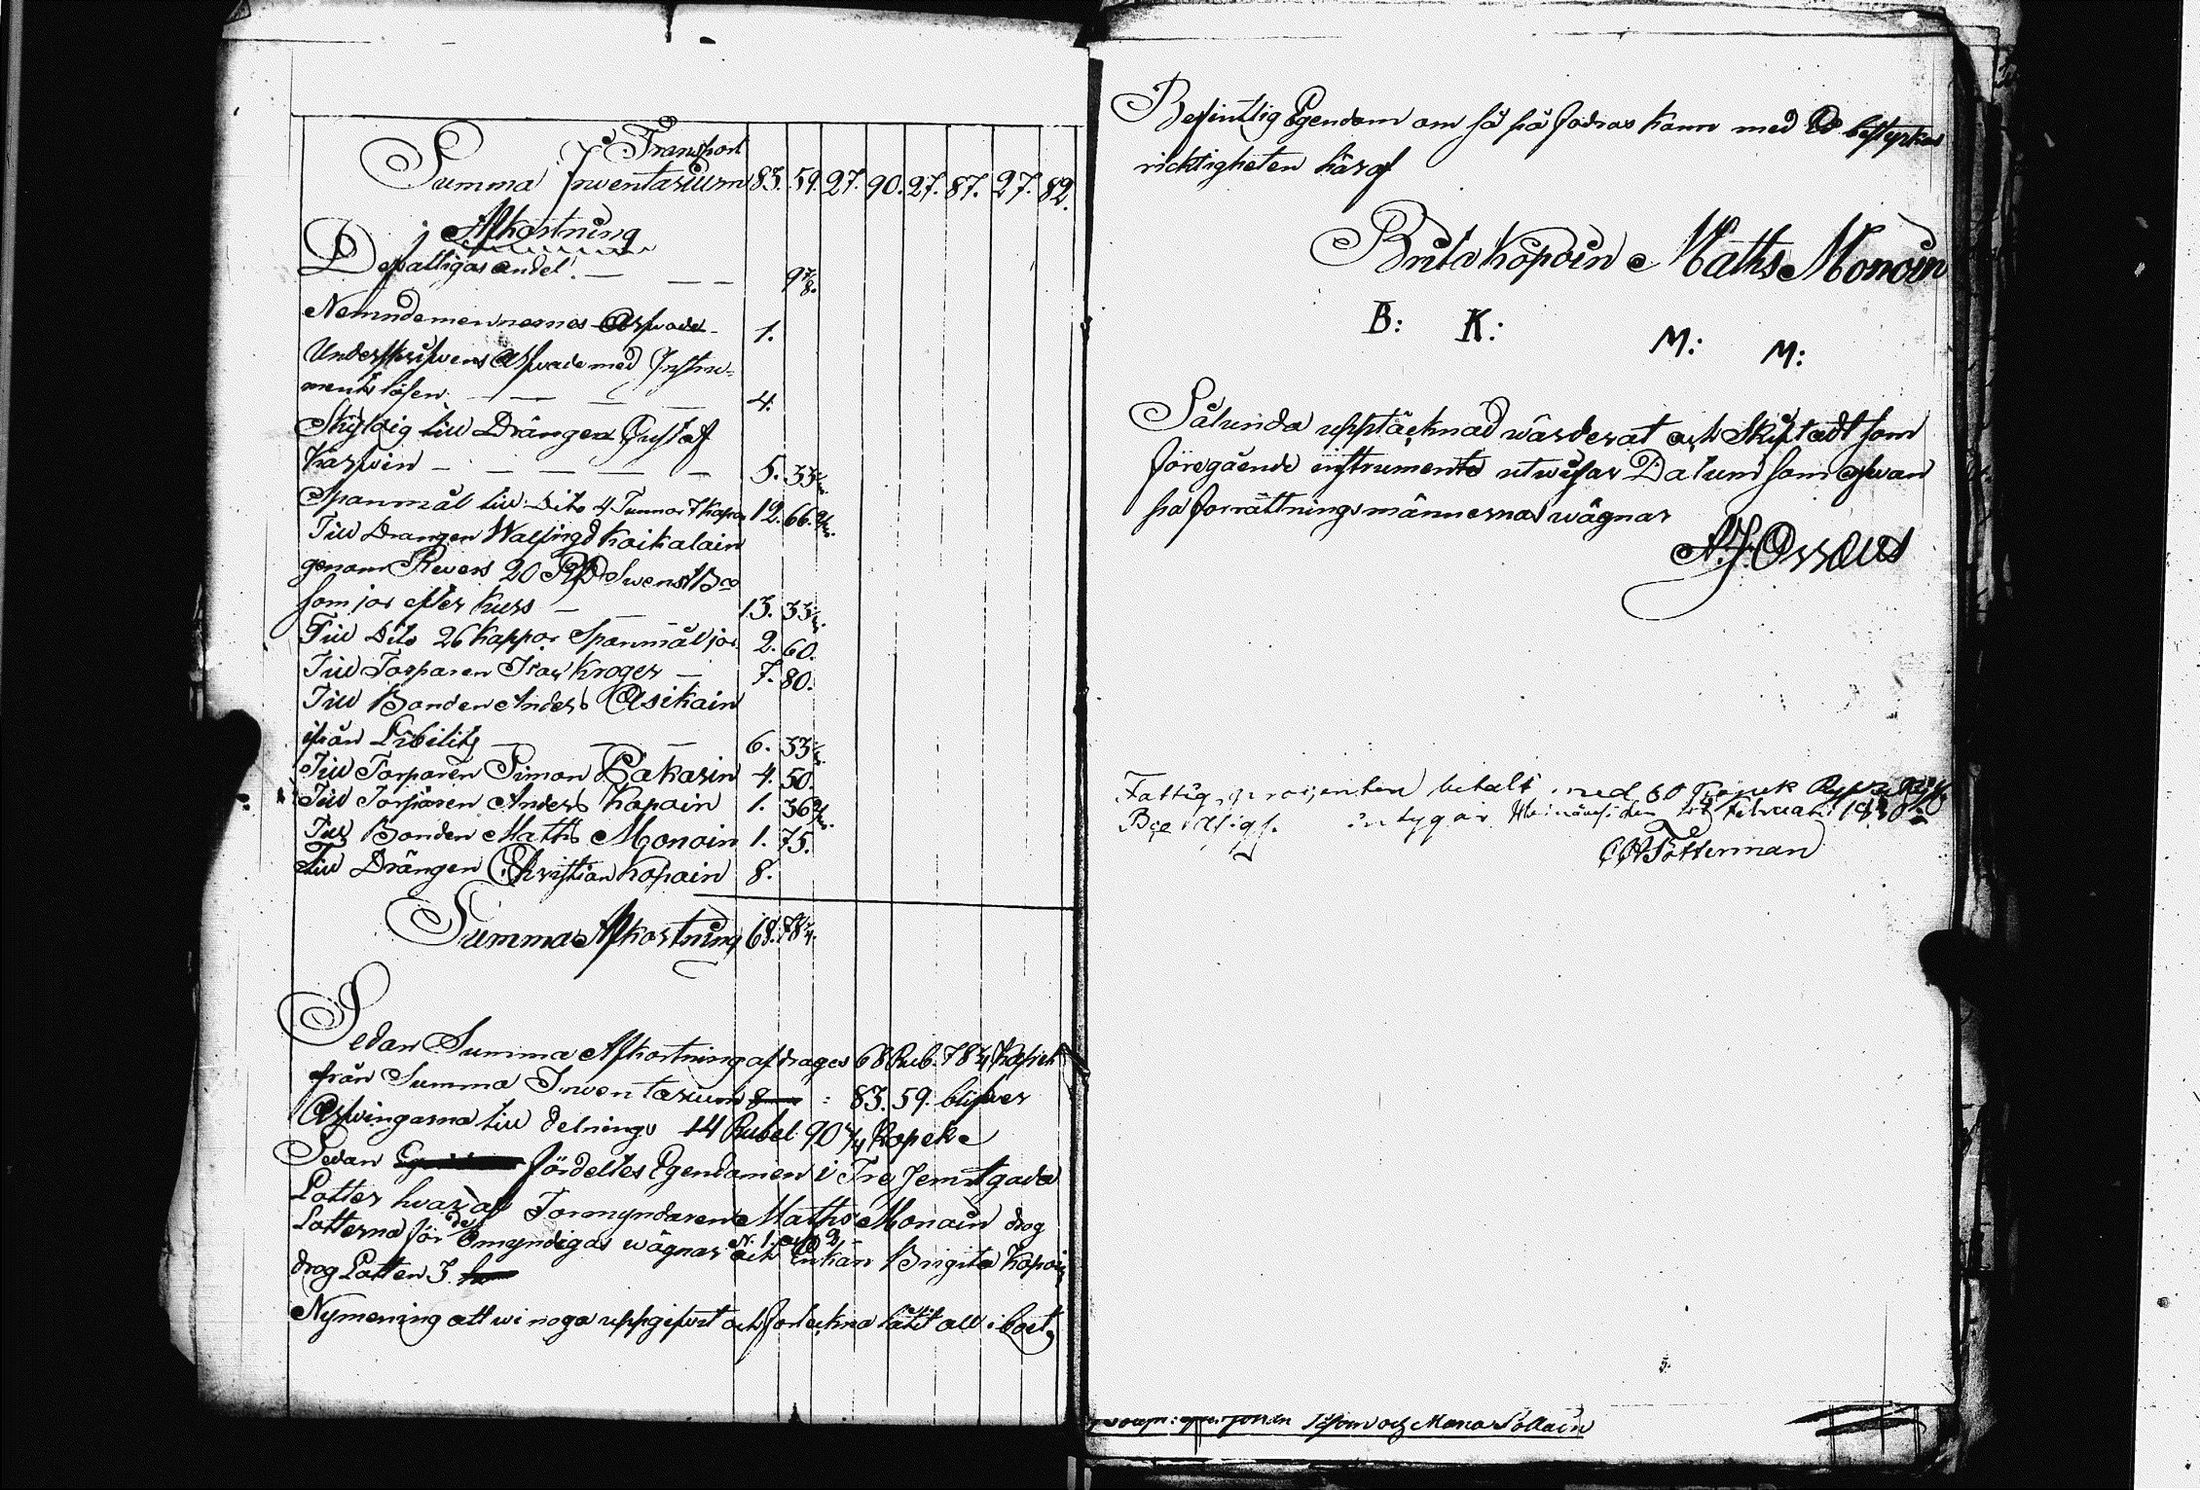 Transport
Summa Inventarium 83. 59. 27. 90. 27. 87. 27. 82.
Afkortning
De fattigas andel. — — — 9 7/8.
Nemndemennernas Arfvode - 1.
Underskrifvens Arfvode med Instru-
ments lösen — — — — 4.
Skyldig till Drängen Gustaf
Karfvin — — — — — 5. 33
Spanmål till Dito 4 Tunnor 7 Kapor 12. 66.
Till Drangen Walfrigd Koikalain
genom Revers 20 RD Swenst Bco
som jor efter Kurs — — 13. 33
Till Dito 26 Kappor Spanmål jor. 2. 60.
Till Torparen Isac Kroger — 7. 80.
Till Bonden Anders Asikain
ifrån Libilits — — — 6. 33
Till Torparen Simon Pakarin 4. 50.
Till Torparen Anders Kopoin 1. 36
Till Bonden Maths Monoin 1. 75.
Till Drängen Christian Kopoin 8.
Summa Afkortning 68. 78 1/4.
Sedan Summa Afkortning afdrages 68 Rub. 78 1/4 Kopek
från Summa Inventarium : 83. 59. blifver
Arfvingarna till delning 14 Rubel 90 3/4 Kopek
Sedan fördeltes Egendomen i Tre Jemtgoda
Lotter hvaraf Formyndaren Maths Monoin drog
Lotterna för de Omyndigas wägnar N: 1. och 2 och Enkan Brigita Kopoin
drog Lotten 3.
Nymening att wi noga uppgifvit och forteckna låtit all i boet
Befintlig Egendom om så på fodras kann med Ed bestyrkes
ricktigheten häraf
Brita Kopoin Maths Monoin
B: K: M: M:
Sålunda upptäcknad wärderat och Skiftadt som
föregående instrumente utwisar Datum som ofvan
på forrättningsmännernas wägnar
A.J. Orraeus
Fattig procenten betalt med 60 Kopek
intygar den Februari
Totterman
och Maria Sollain